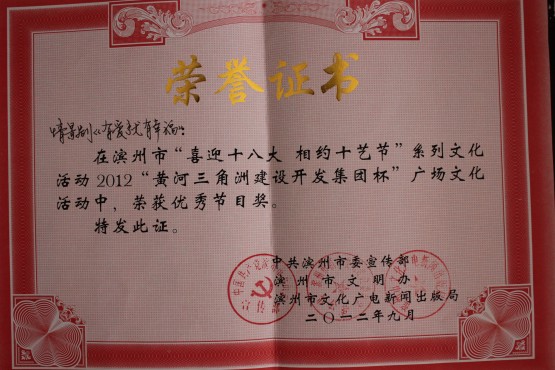 荣誉证书
情景剧《有爱就有幸福》:
在滨州市“喜迎十八大 相约十艺节”系列文化
活动2012“黄河三角洲建设开发集团杯”广场文化
活动中，荣获优秀节目奖。
特发此证。
中共滨州市委宣传部
滨州市文明办
滨州市文化广电新闻出版局
二〇一二年九月
宣传部